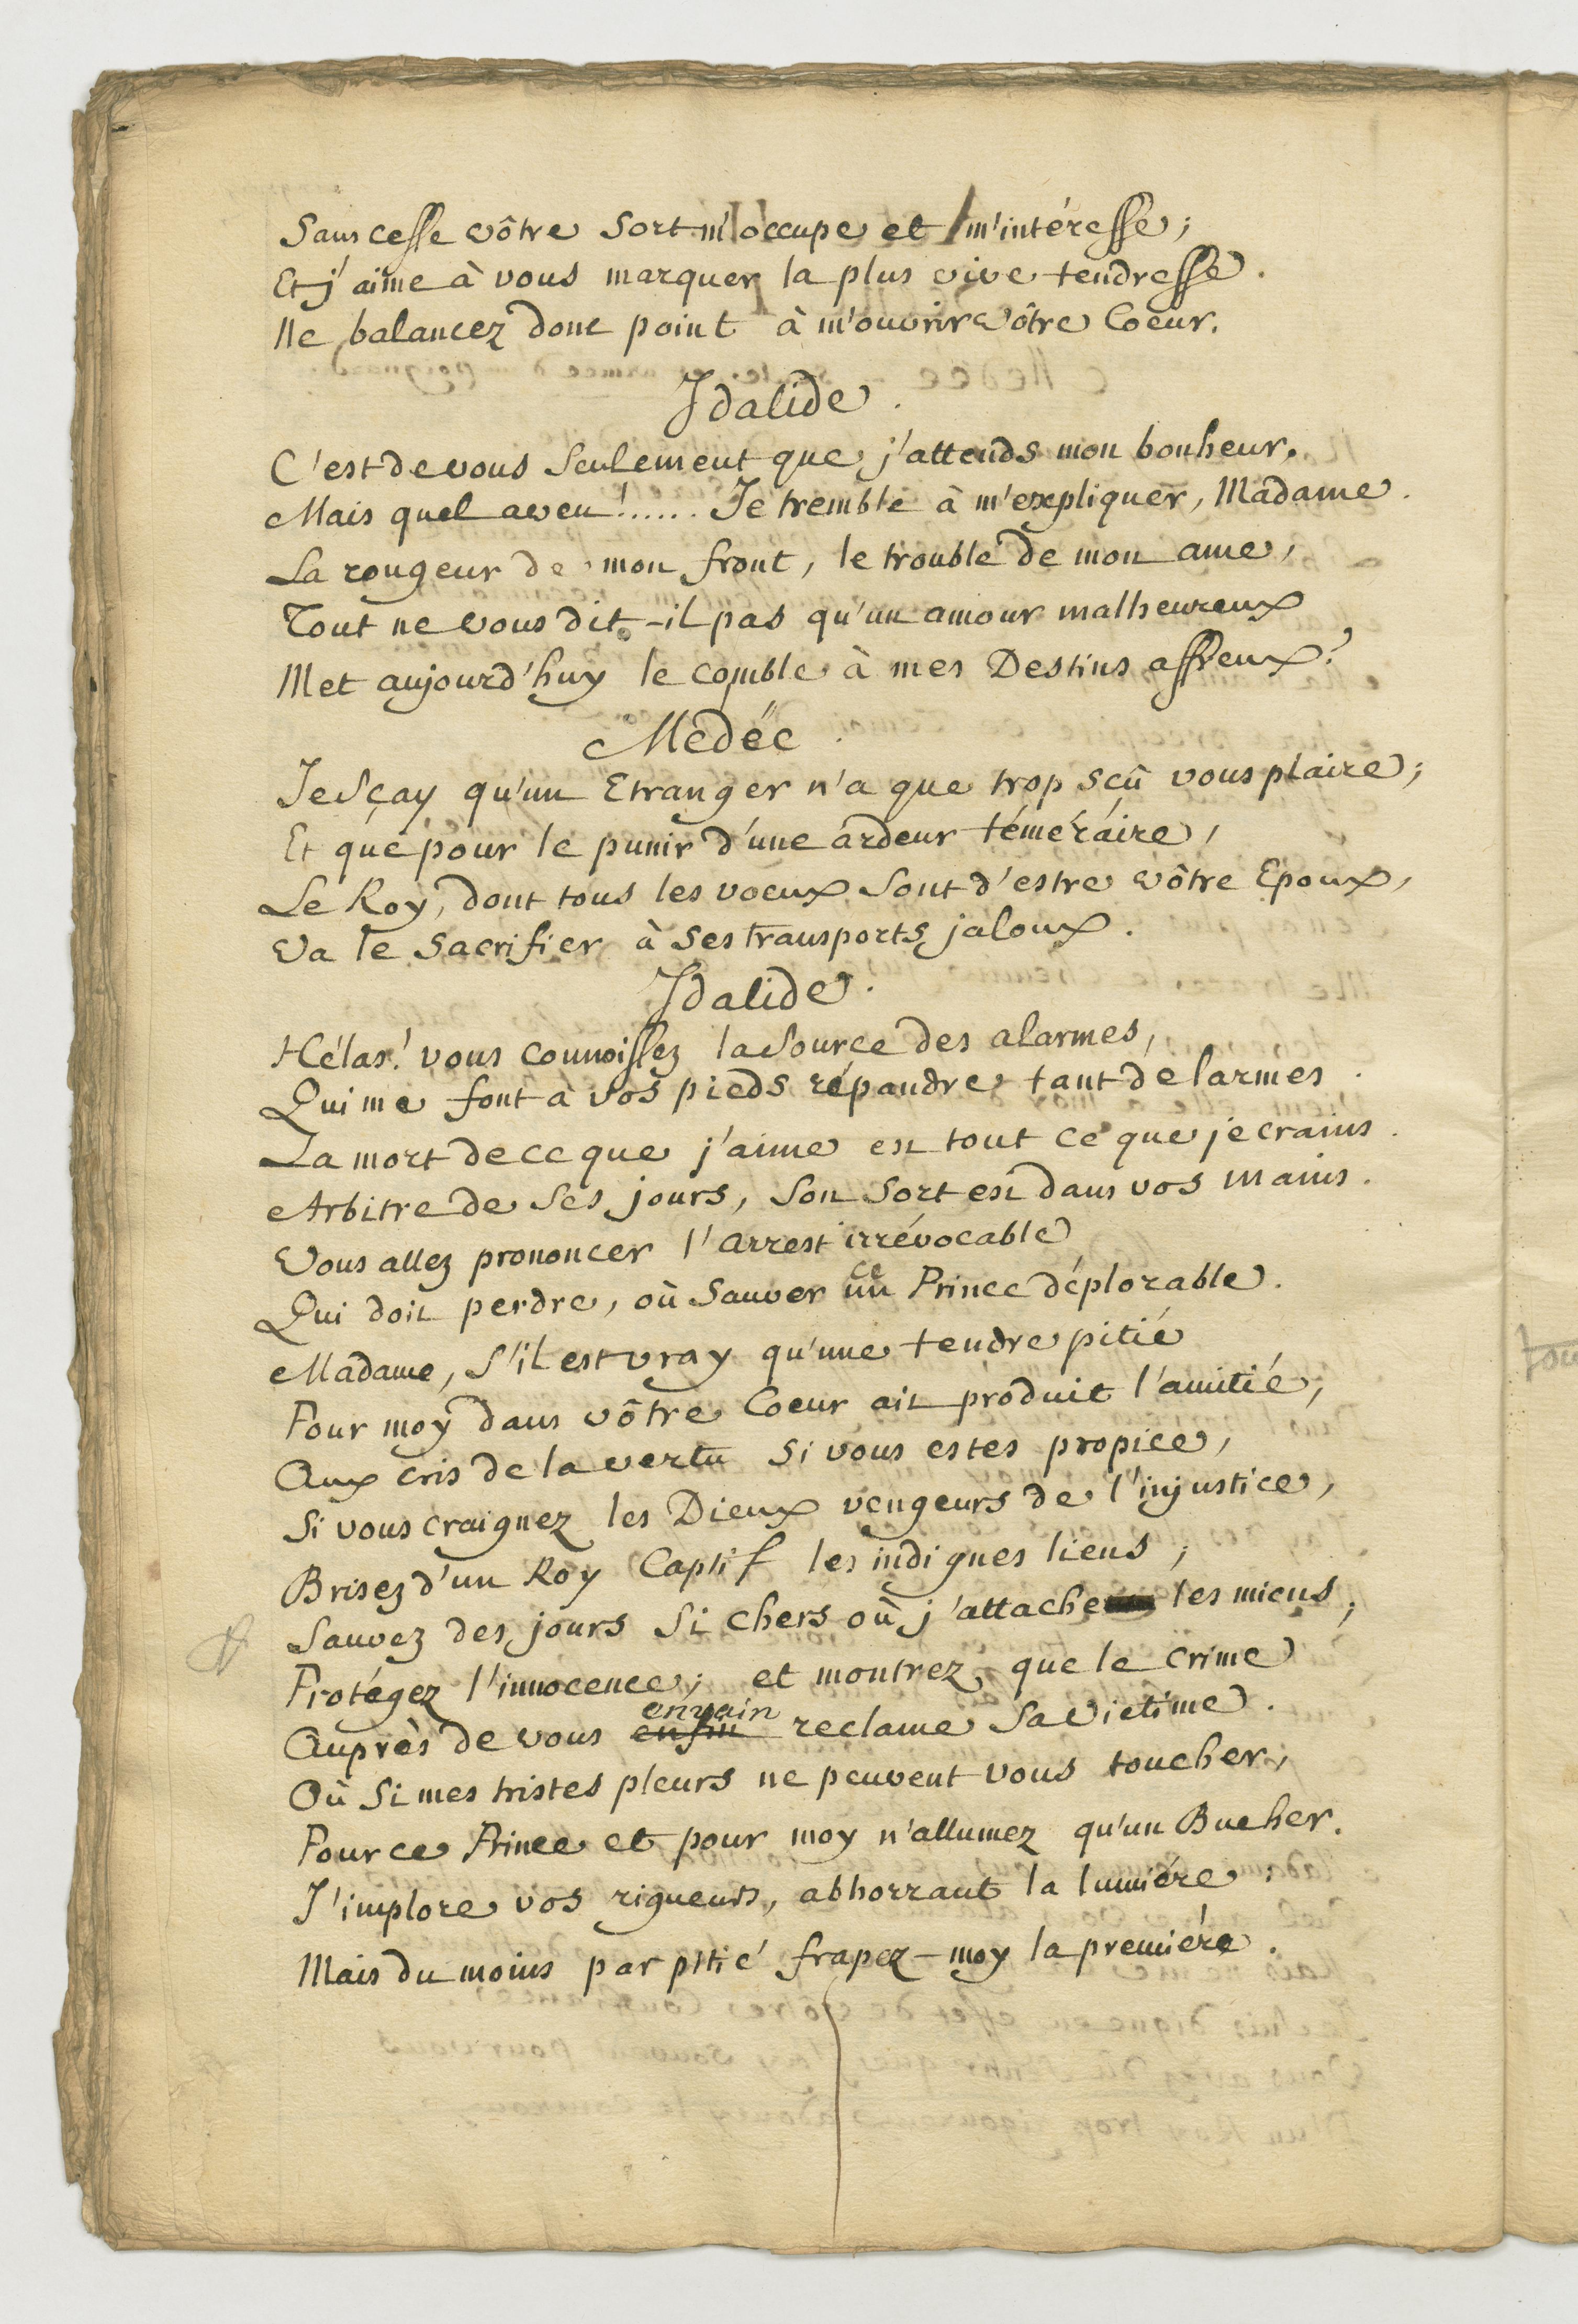 Sans cesse vôtre Sort m'occupe et m'intéresse;
Et j'aime à vous marquer la plus vive tendresse.
Ne balancez donc point à m'ouvrir vôtre Coeur.
Idalide.
C'est de vous Seulement que j'attends mon bonheur.
Mais quel aveu!...... Je tremble à m'expliquer, Madame.
La rougeur de mon front, le trouble de mon ame,
Tout ne vous dit-il pas qu'un amour malheureux
Met aujourd'huy le comble à mes Destins affreux?
Medée.
Je Sçay qu'un Etranger n'a que trop sçû vous plaire;
Et que pour le punir d'une ardeur téméraire,
Le Roy, dont tous les voeux Sont d'estre vôtre Epoux,
Va le Sacrifier à Ses transports jaloux.
Idalide.
Hélas! vous connoissez la Source des alarmes,
Qui me font à vos pieds répandre tant de larmes.
La mort de ce que j'aime est tout ce que je crains.
Arbitre de Ses jours, Son Sort est dans vos mains.
Vous allez prononcer l'arrest irrévocable
ce
Qui doit perdre, où Sauver un Prince déplorable.
Madame, S'il est vray qu'une tendre pitié
Pour moy dans vôtre Coeur ait produit l'amitié,
Aux cris de la vertu Si vous estes propice,
Si vous craignez les Dieux vengeurs de l'injustice,
Brisez d'un Roy Captif les indignes liens;
Sauvez des jours Si chers où j'attache les miens;
Protégez l'innocence; et montrez, que le crime
envain
Auprès de vous enfin reclame Sa victime.
Où Si mes tristes pleurs ne peuvent vous toucher,
Pour ce Prince et pour moy n'allumez qu'un Bucher.
J'implore vos rigueurs, abhorrant la lumiére:
Mais du moins par pitié frapez-moy la premiére.